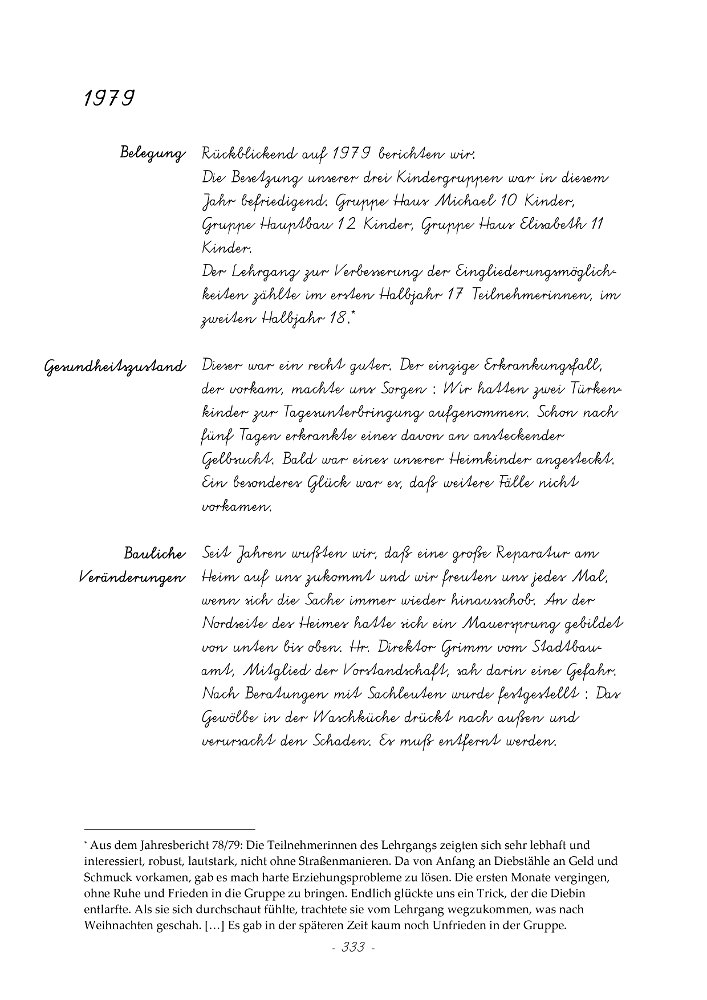 1979
Belegung Rückblickend auf 1979 berichten wir:
Die Besetzung unserer drei Kindergruppen war in diesem
Jahr befriedigend. Gruppe Haus Michael 10 Kinder,
Gruppe Hauptbau 12 Kinder, Gruppe Haus Elisabeth 11
Kinder.
Der Lehrgang zur Verbesserung der Eingliederungsmöglich-
keiten zählte im ersten Halbjahr 17 Teilnehmerinnen, im
zweiten Halbjahr 18.*
Gesundheitszustand Dieser war ein recht guter. Der einzige Erkrankungsfall,
der vorkam, machte uns Sorgen : Wir hatten zwei Türken-
kinder zur Tagesunterbringung aufgenommen. Schon nach
fünf Tagen erkrankte eines davon an ansteckender
Gelbsucht. Bald war eines unserer Heimkinder angesteckt.
Ein besonderes Glück war es, daß weitere Fälle nicht
vorkamen.
Bauliche Seit Jahren wußten wir, daß eine große Reparatur am
Veränderungen Heim auf uns zukommt und wir freuten uns jedes Mal,
wenn sich die Sache immer wieder hinausschob. An der
Nordseite des Heimes hatte sich ein Mauersprung gebildet
von unten bis oben. Hr. Direktor Grimm vom Stadtbau-
amt, Mitglied der Vorstandschaft, sah darin eine Gefahr.
Nach Beratungen mit Sachleuten wurde festgestellt : Das
Gewölbe in der Waschküche drückt nach außen und
verursacht den Schaden. Es muß entfernt werden.
* Aus dem Jahresbericht 78/79: Die Teilnehmerinnen des Lehrgangs zeigten sich sehr lebhaft und
interessiert, robust, lautstark, nicht ohne Straßenmanieren. Da von Anfang an Diebstähle an Geld und
Schmuck vorkamen, gab es mach harte Erziehungsprobleme zu lösen. Die ersten Monate vergingen,
ohne Ruhe und Frieden in die Gruppe zu bringen. Endlich glückte uns ein Trick, der die Diebin
entlarfte. Als sie sich durchschaut fühlte, trachtete sie vom Lehrgang wegzukommen, was nach
Weihnachten geschah. […] Es gab in der späteren Zeit kaum noch Unfrieden in der Gruppe.
- 333 -